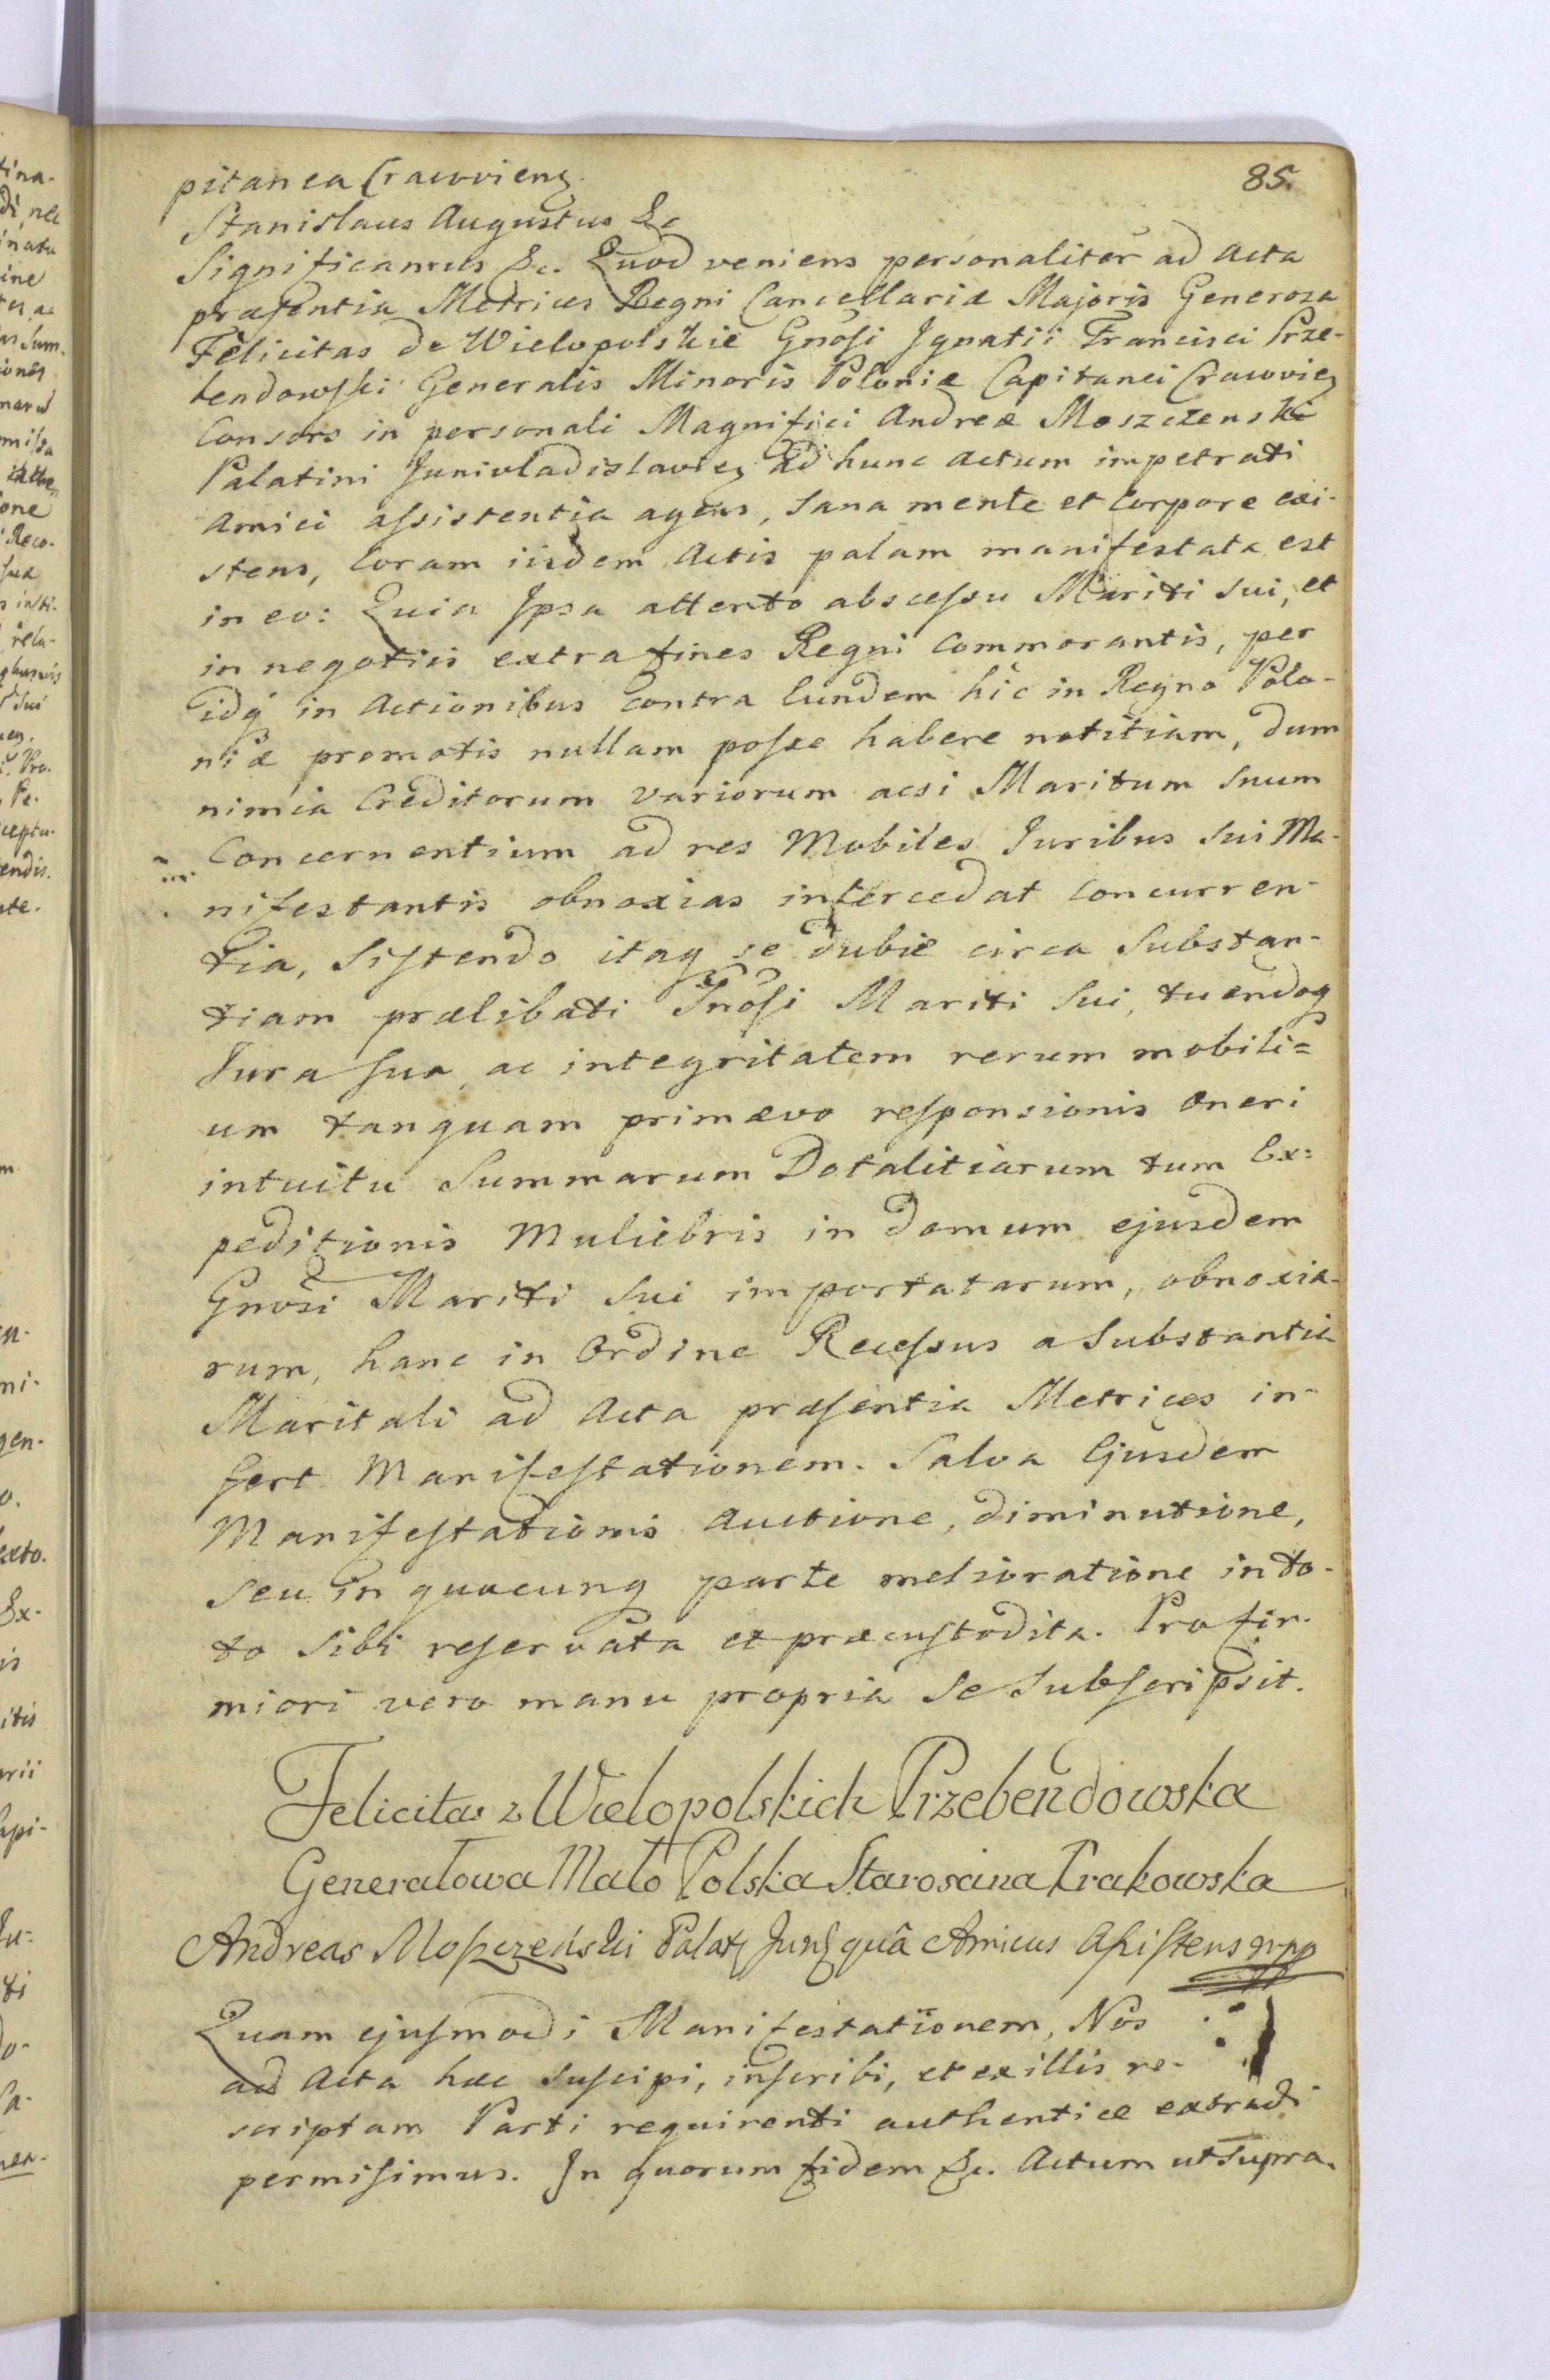 85.
pitanea Cracovieng
Stanislaus Augustus &c
Significamus &c. Quod veniens personaliter ad Acta
præsentia Metrices Regni Cancellariæ Majoris Generosa
Felicitas de Wielopolskie Gnosi Ignatii Francisci Prze-
bendowski Generalis Minoris Poloniæ Capitanei Cracovien
Consors in personali Magnifici Andreæ Moszczenski
Palatini Junivladislavien ad hunc actum impetrati
Amici assistentia agens, sana mente et Corpore exi-
stens, Coram iisdem Actis palam manifestata est
in eo: Quia Ipsa attento abscessu Mariti Sui, et
in negotiis extra fines Regni Commorantis, per
idq in Actionibus contra Eundem hic in Regno Polo-
niæ promotis nullam posse habere notitiam, dum
nimia Creditorum variorum acsi Maritum Suum
Concernentium ad res Mobiles Juribus Sui Ma-
nifestantis obnoxias intercedat Concurren-
tia, Sistendo itaq se dubie circa Substan-
tiam prælibati Gnosi Mariti Sui, tuendoq
Jura Sua, ac integritatem rerum mobili=
um tanquam primævo responsionis Oneri
intuitu Summarum Dotalitiarum tum Ex=
peditionis Muliebris in domum ejusdem
Gnosi Mariti Sui importatarum, obnoxia-
rum, hanc in Ordine Recessus a Substantia
Maritali ad Acta præsentia Metrices in-
fert Manifestationem. Salva Ejusdem
Manifestationis Auctione, diminutione,
seu in quacunq parte melioratione in to-
to Sibi reservata et præcustodita. Pro fir-
miori vero manu propria Se Subscripsit.
Felicitas z Wielopolskich Przebendowska
Generałowa Mało Polska Starościna Krakowska
Andreas Moszczeński Palat Jun quâ Amicus Assistens mpp
Quam ejusmodi Manifestationem, Nos
ad Acta hæc suscipi, inscribi, et ex illis re-
scriptam Parti requirenti authentice extradi
permisimus. In quorum fidem &c. Actum ut Supra.